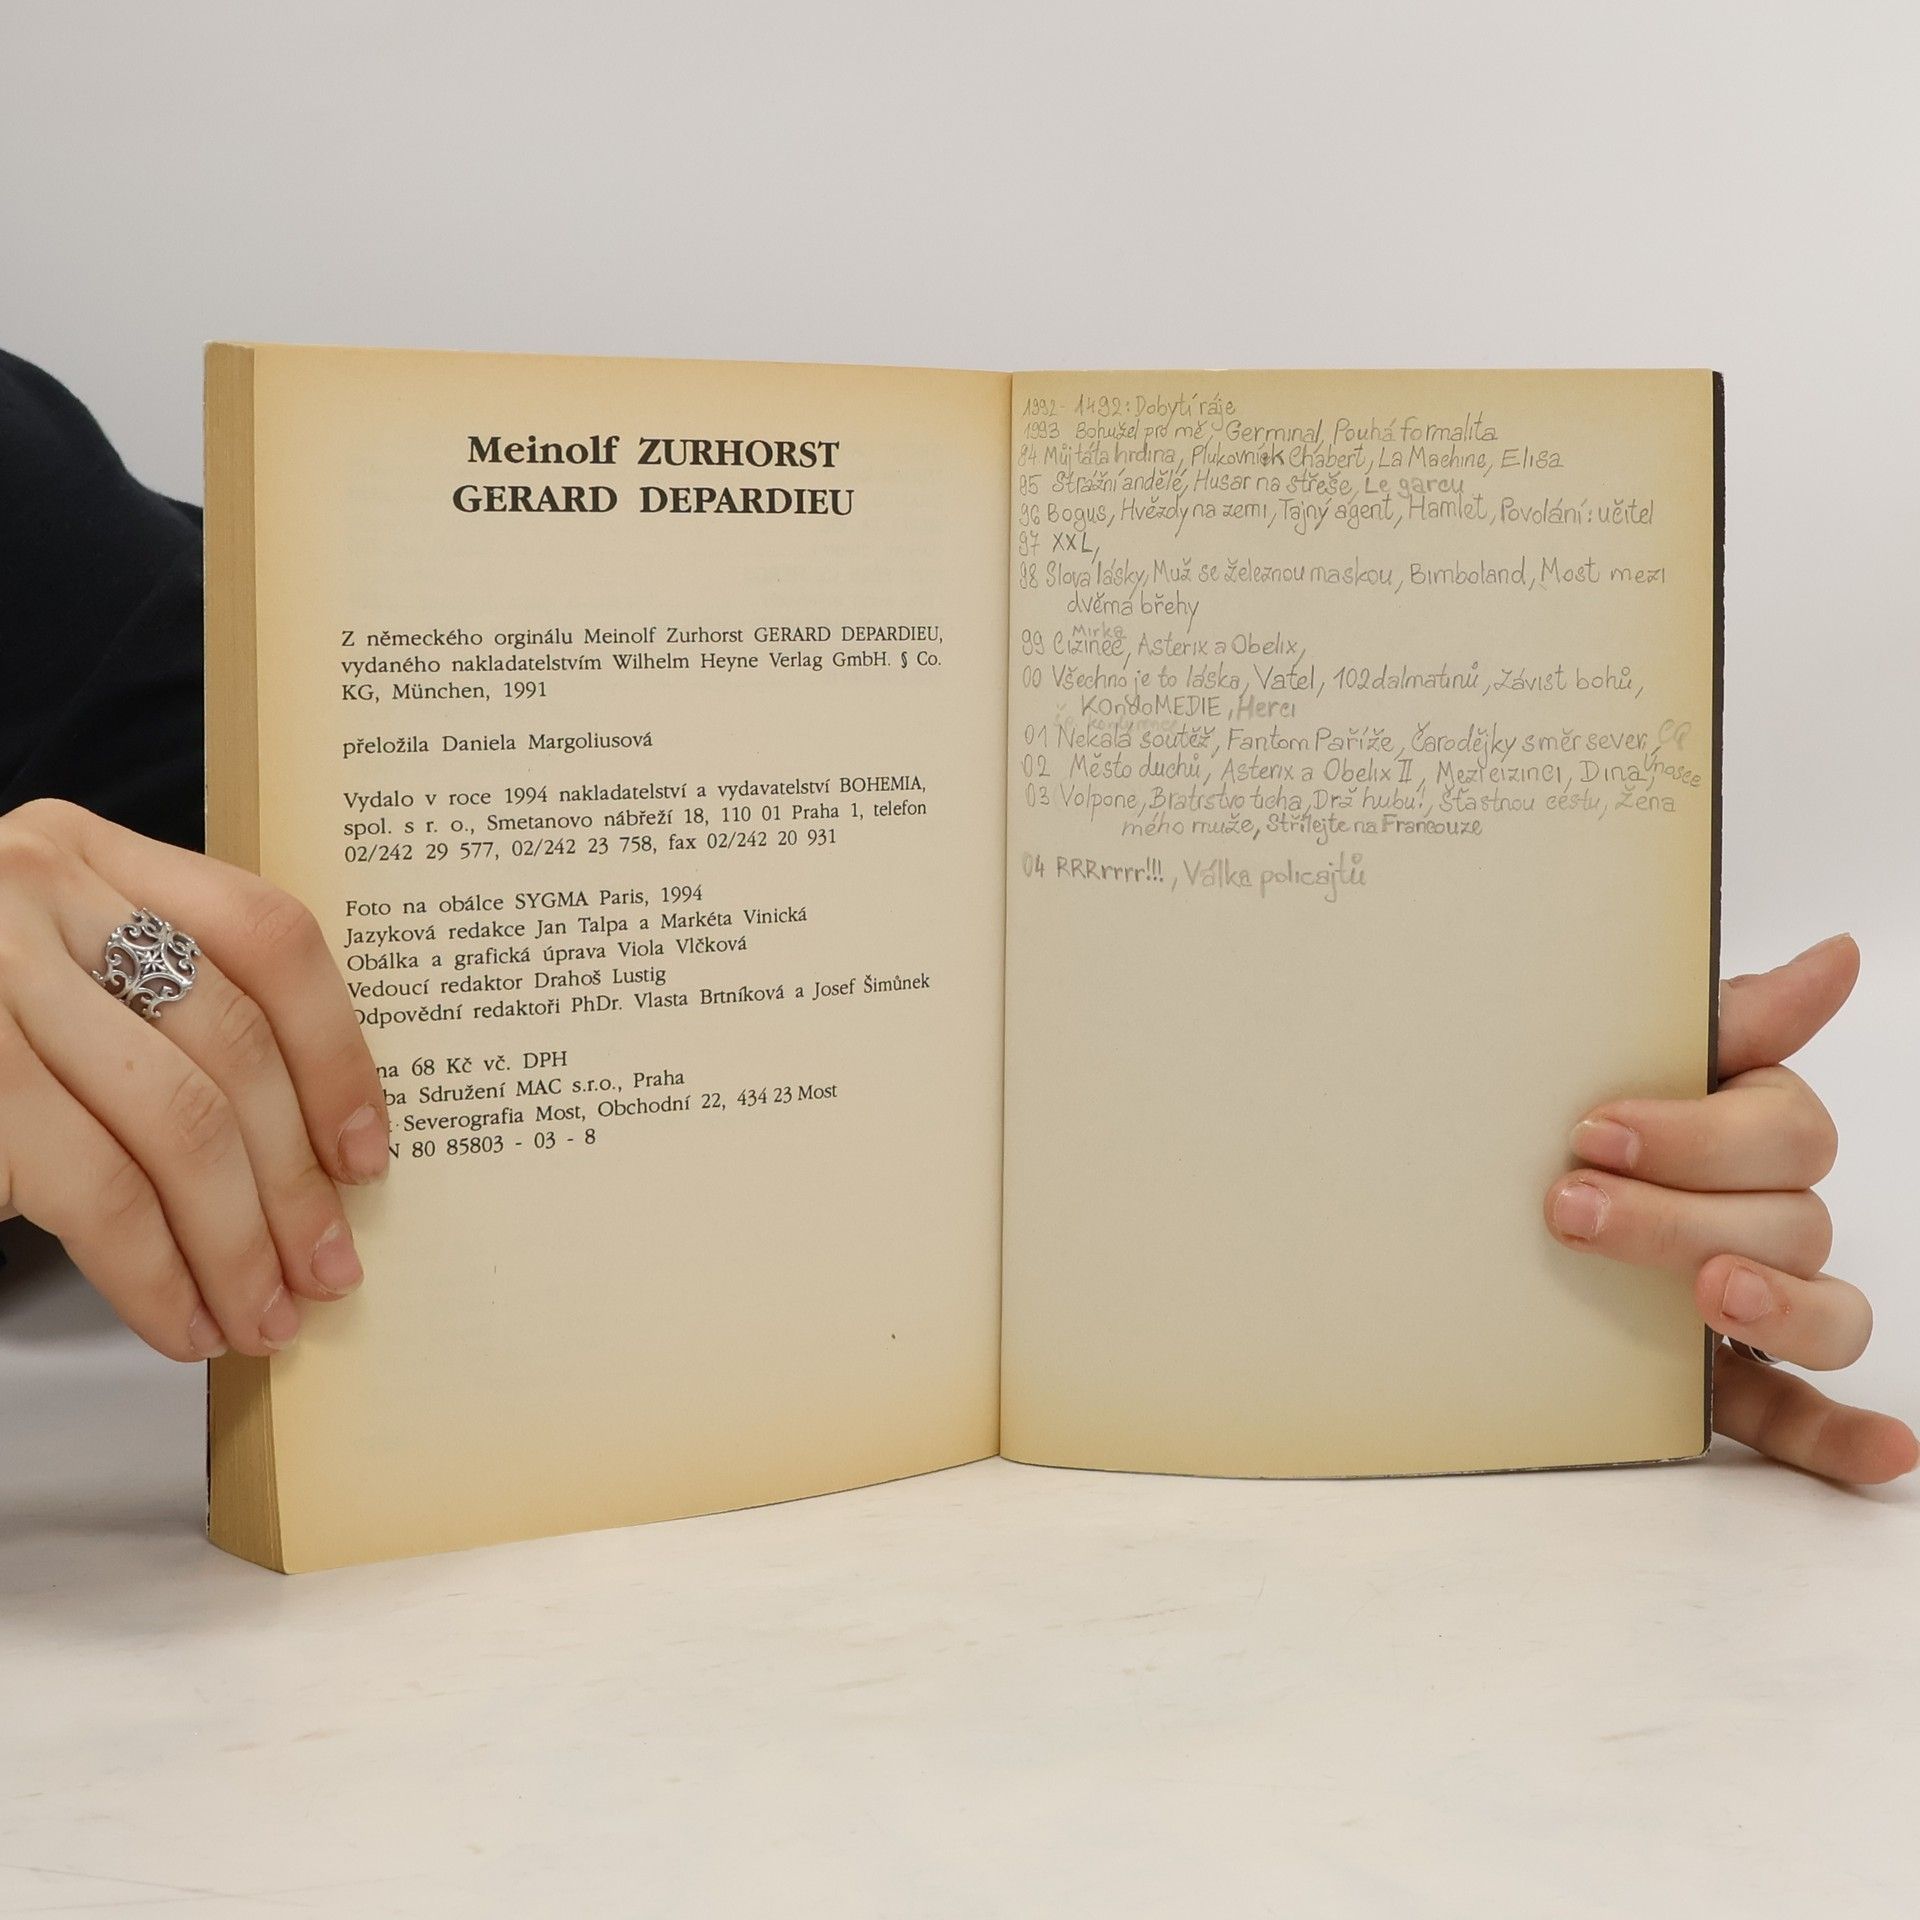 Meinolf ZURHORST
GERARD DEPARDIEU
Z německého orginálu Meinolf Zurhorst GERARD DEPARDIEU,
vydaného nakladatelstvím Wilhelm Heyne Verlag GmbH. § Co.
KG, München, 1991
přeložila Daniela Margoliusová
Vydalo v roce 1994 nakladatelství a vydavatelství BOHEMIA,
spol. s r. o., Smetanovo nábřeží 18, 110 01 Praha 1, telefon
02/242 29 577, 02/242 23 758, fax 02/242 20 931
Foto na obálce SYGMA Paris, 1994
Jazyková redakce Jan Talpa a Markéta Vinická
Obálka a grafická úprava Viola Vlčková
Vedoucí redaktor Drahoš Lustig
Odpovědní redaktoři PhDr. Vlasta Brtníková a Josef Šimůnek
na 68 Kč vč. DPH
ba Sdružení MAC s.r.o., Praha
: Severografia Most, Obchodní 22, 434 23 Most
N 80 85803 - 03 - 8
1992 - 1492: Dobytí ráje
1993 Bohužel pro mě, Germinal, Pouhá formalita
94 Můj táta hrdina, Plukovník Chabert, La Machine, Elisa
95 Strážní andělé, Husar na střeše, Le garcu
96 Bogus, Hvězdy na zemi, Tajný agent, Hamlet, Povolání: učitel
97 XXL,
98 Slova lásky, Muž se železnou maskou, Bimboland, Most mezi
dvěma břehy
Mirka
99 Cizinec, Asterix a Obelix,
00 Všechno je to láska, Vatel, 102 dalmatinů, Závist bohů,
KOndoMEDIE, Herci
01 Nekalá soutěž, Fantom Paříže, Čarodějky směr sever, CQ
02 Město duchů, Asterix a Obelix II, Mezi cizinci, Dina, Únosce
03 Volpone, Bratrstvo ticha, Drž hubu!, Šťastnou cestu, Žena
mého muže, Střílejte na Francouze
04 RRRrrrr!!!, Válka policajtů